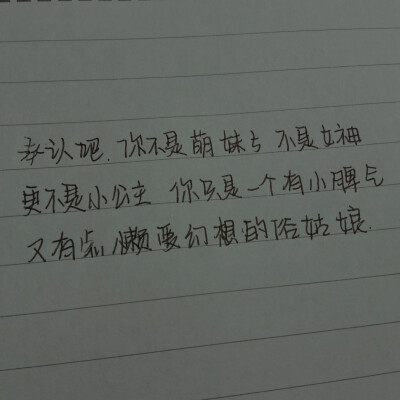 承认吧.你不是萌妹ち 不是女神
更不是小公主 你只是一个有小脾气
又有点懒爱幻想的俗姑娘.